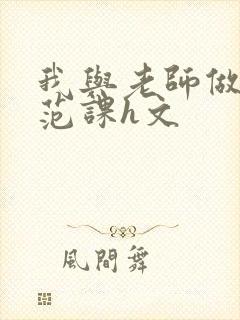 我與老師做
范課h文
風間舞